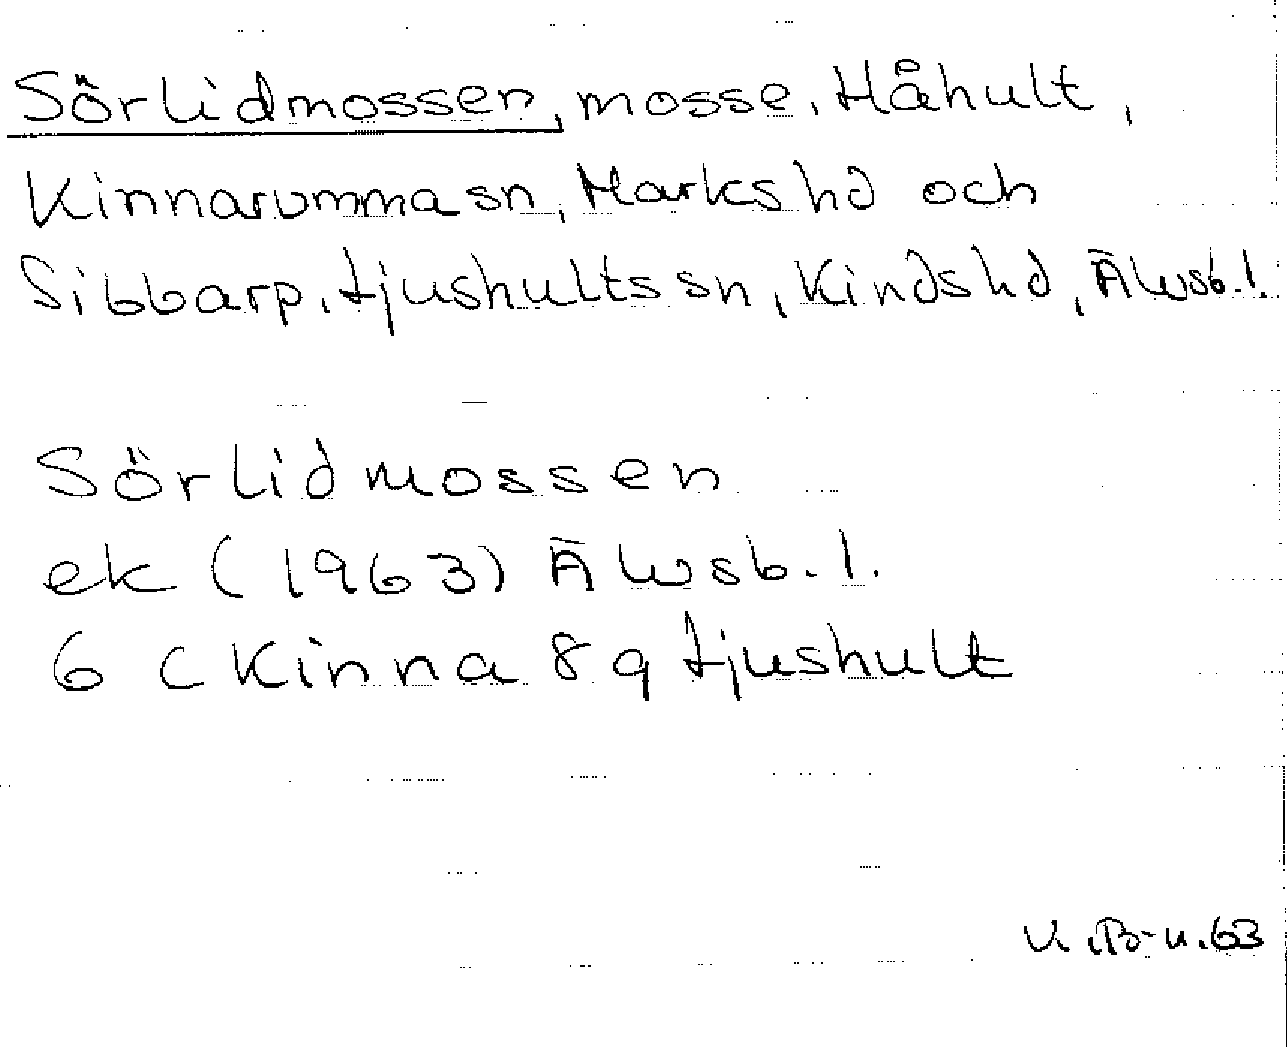 Sörlidmossen, mosse, Håhult,
Kinnarumma sn, Marks hd och
Sibbarp, Ljushults sn, Kinds hd, Älvsb. l.
Sörlidmossen
ek (1963) Älvsb. l.
6 C Kinna 8 q Ljushult
K. B-n. 63